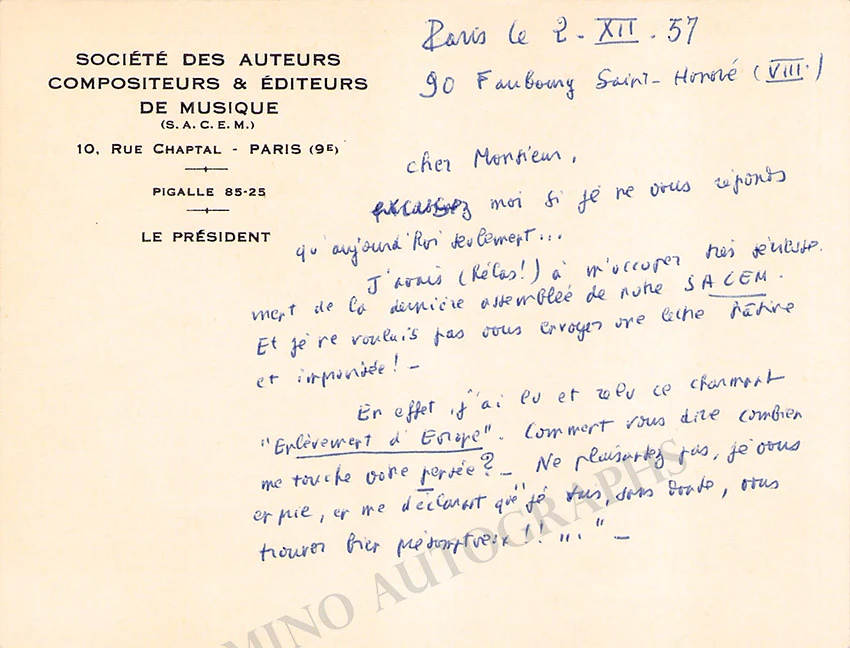 SOCIÉTÉ DES AUTEURS
COMPOSITEURS & ÉDITEURS
DE MUSIQUE
(S. A. C. E. M.)
10, RUE CHAPTAL - PARIS (9E)
PIGALLE 85-25
LE PRÉSIDENT
Paris le 2 - XII - 57
90 Faubourg Saint-Honoré (VIII.)
cher Monsieur,
excusez moi si je ne vous réponds
qu'aujourd'hui seulement...
J'avais (hélas!) à m'occuper très sérieuse-
ment de la dernière assemblée de notre SACEM.
Et je ne voulais pas vous envoyer une lettre hâtive
et improvisée! -
En effet, j'ai lu et relu ce charmant
"Enlèvement d'Europe". Comment vous dire combien
me touche votre pensée? - Ne plaisantez pas, je vous
en prie, en me déclarant que "je dus, sans doute, vous
trouver bien présomptueux!! "..." -
MINO AUTOGRAPHS